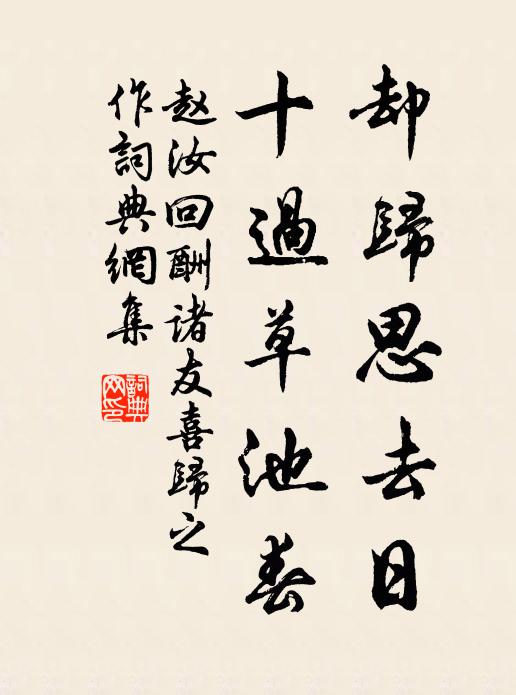 却歸思去日
十過草池春
赵汝回酬诸友喜歸之
作詞典網集
詞典网印